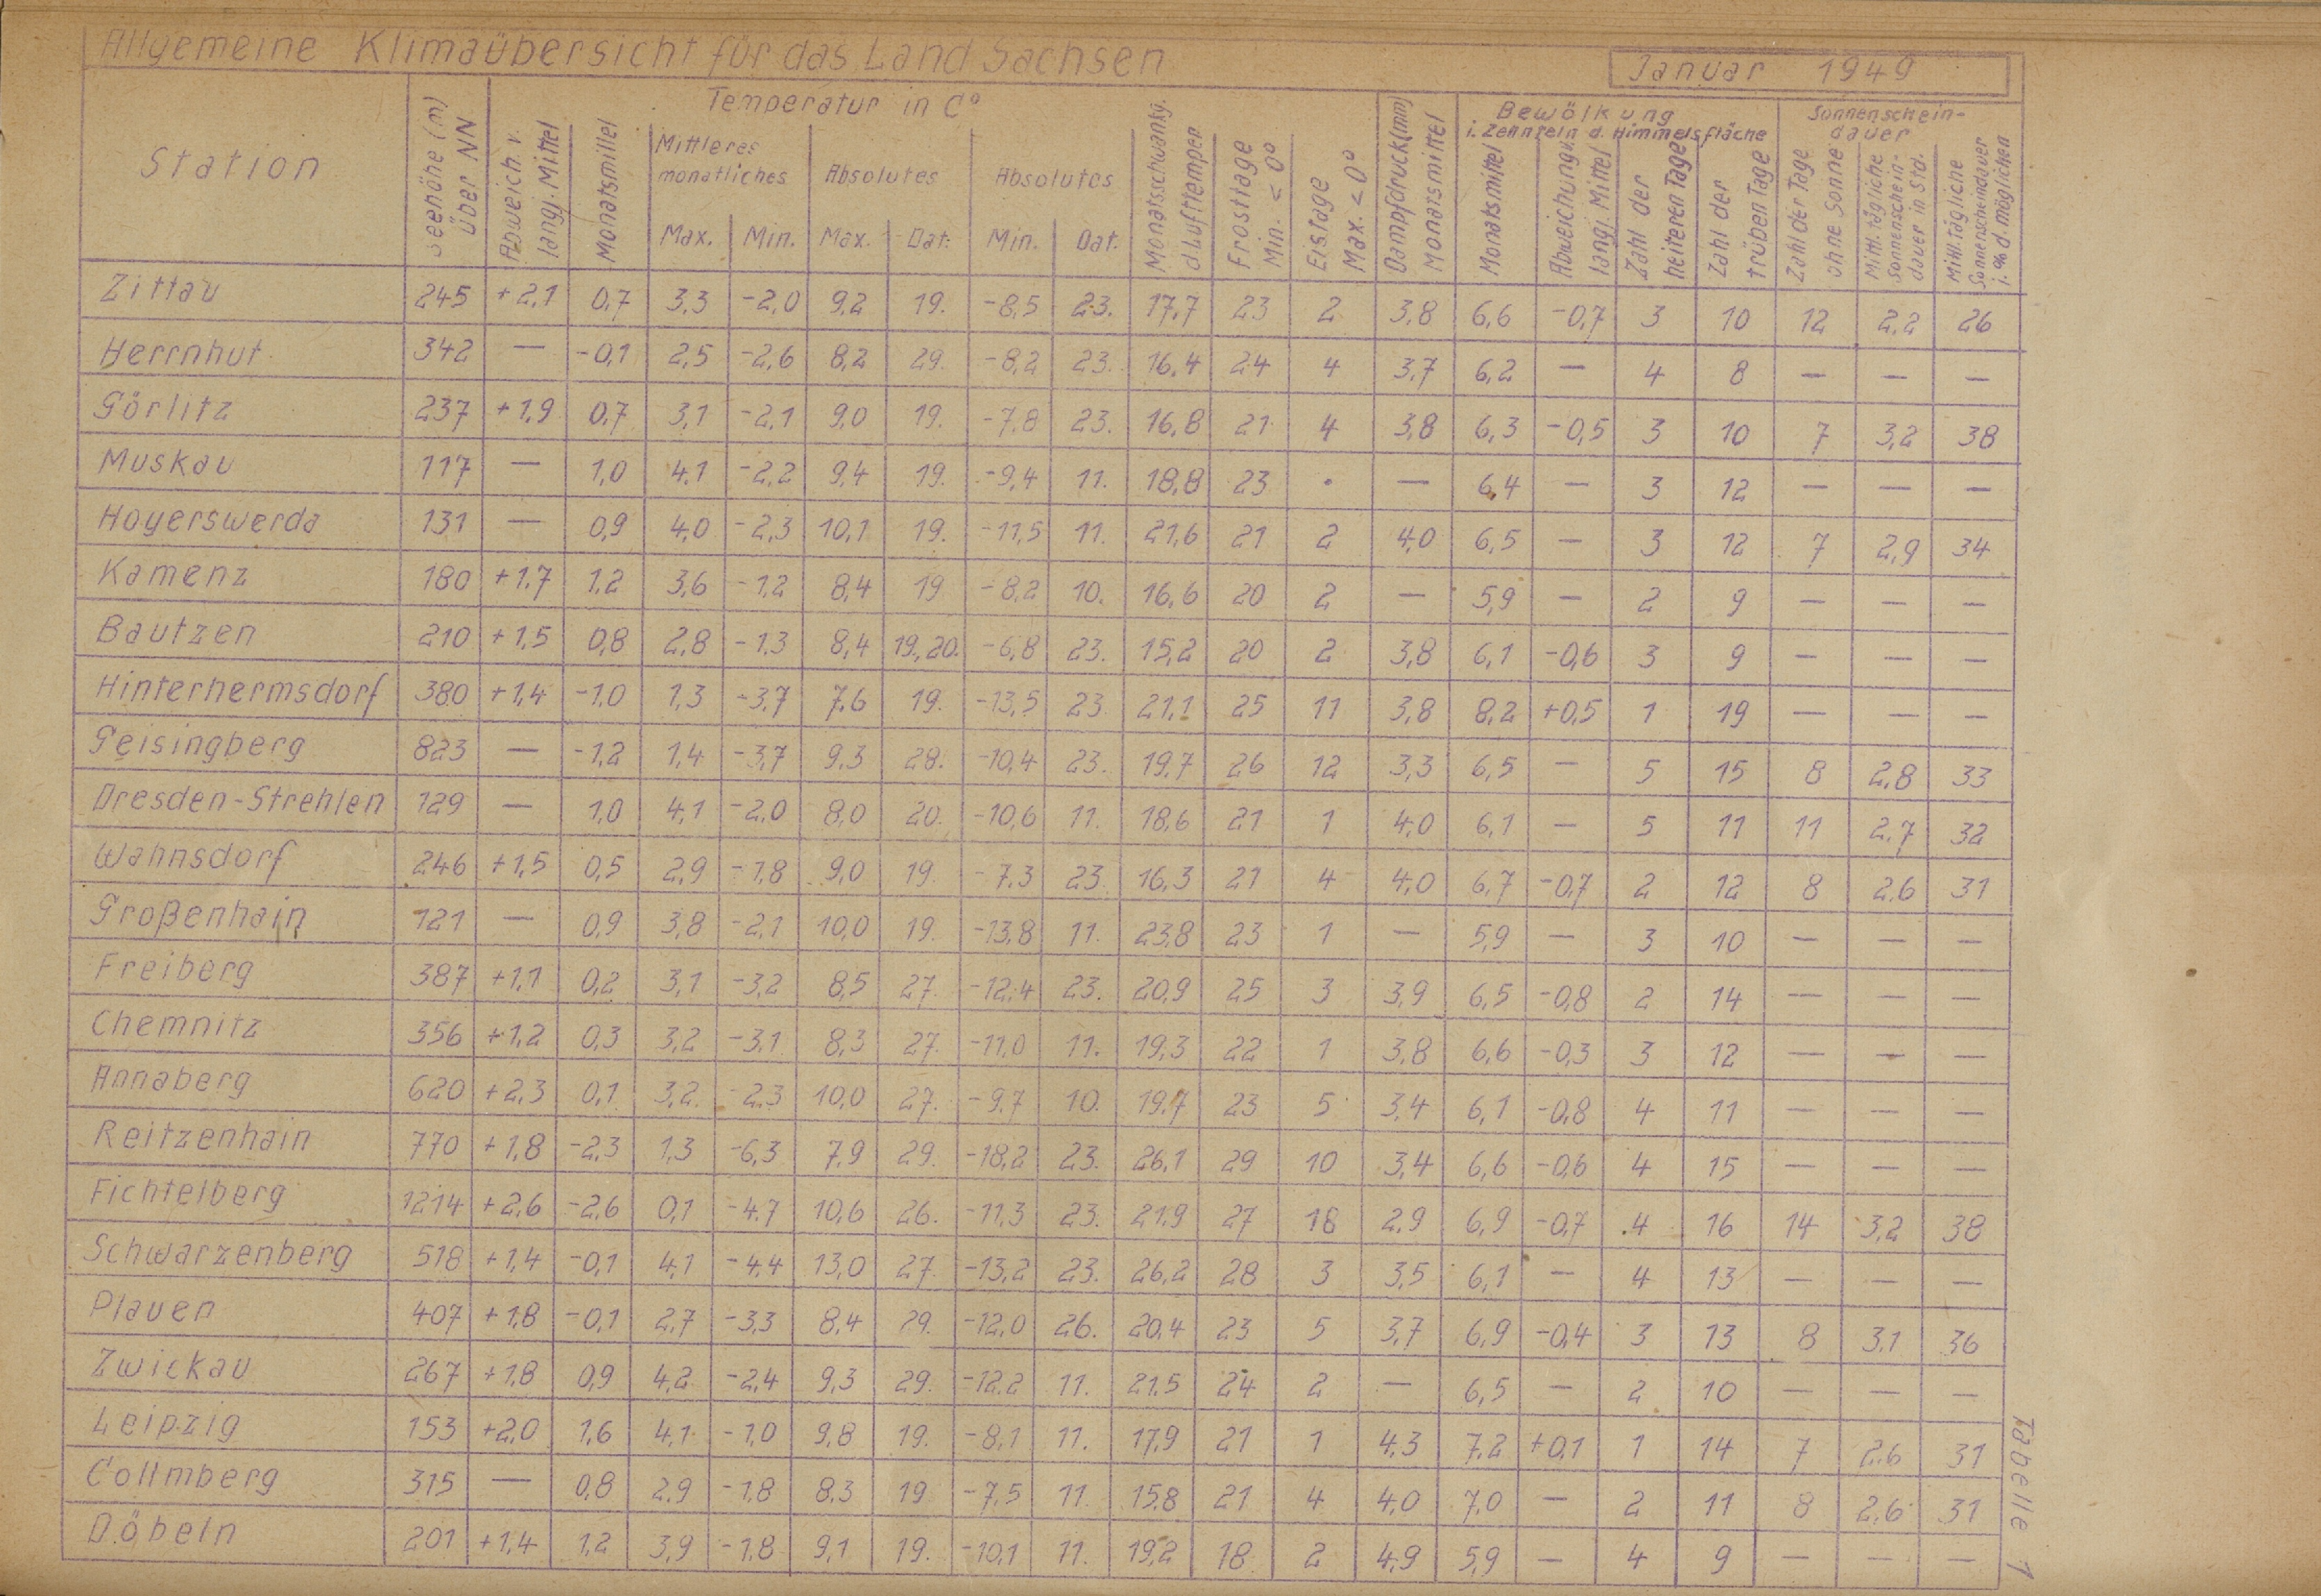 Allgemeine Klimaübersicht für das Land Sachsen
Januar 1949
Station
Seehöhe (m) über NN
Abweich. v. langj. Mittel
Temperatur in C°
Monatsmittel
Mittleres monatliches
Max. Min.
Absolutes
Max. Dat.
Absolutes
Min. Dat.
Monatsschwankg. d. Lufttemper.
Frosttage Min. < 0°
Eistage Max. < 0°
Dampfdruck (mm) Monatsmittel
Bewölkung
i. Zehnteln d. Himmelsfläche
Monatsmittel
Abweichung v. langj. Mittel
Zahl der heiteren Tage
Zahl der trüben Tage
Sonnenschein-
dauer
Zahl der Tage ohne Sonne
Mittl. tägliche Sonnenschein- dauer in Std.
Mittl. tägliche Sonnenscheindauer i. % d. möglichen
Zittau 245 +2,1 0,7 3,3 -2,0 9,2 19. -8,5 23. 17,7 23 2 3,8 6,6 -0,7 3 10 12 2,2 26
Herrnhut 342 — -0,1 2,5 -2,6 8,2 29. -8,2 23. 16,4 24 4 3,7 6,2 — 4 8 — — —
Görlitz 237 +1,9 0,7 3,1 -2,1 9,0 19. -7,8 23. 16,8 21 4 3,8 6,3 -0,5 3 10 7 3,2 38
Muskau 117 — 1,0 4,1 -2,2 9,4 19. -9,4 11. 18,8 23 . — 6,4 — 3 12 — — —
Hoyerswerda 131 — 0,9 4,0 -2,3 10,1 19. -11,5 11. 21,6 21 2 4,0 6,5 — 3 12 7 2,9 34
Kamenz 180 +1,7 1,2 3,6 -1,2 8,4 19 -8,2 10. 16,6 20 2 — 5,9 — 2 9 — — —
Bautzen 210 +1,5 0,8 2,8 -1,3 8,4 19.,20. -6,8 23. 15,2 20 2 3,8 6,1 -0,6 3 9 — — —
Hinterhermsdorf 380 +1,4 -1,0 1,3 -3,7 7,6 19. -13,5 23 21,1 25 11 3,8 8,2 +0,5 1 19 — — —
Geisingberg 823 — -1,2 1,4 -3,7 9,3 28. -10,4 23. 19,7 26 12 3,3 6,5 — 5 15 8 2,8 33
Dresden-Strehlen 129 — 1,0 4,1 -2,0 8,0 20. -10,6 11. 18,6 21 1 4,0 6,1 — 5 11 11 2,7 32
Wahnsdorf 246 +1,5 0,5 2,9 -1,8 9,0 19. -7,3 23. 16,3 21 4 4,0 6,7 -0,7 2 12 8 2,6 31
Großenhain 121 — 0,9 3,8 -2,1 10,0 19. -13,8 11. 23,8 23 1 — 5,9 — 3 10 — — —
Freiberg 387 +1,1 0,2 3,1 -3,2 8,5 27. -12,4 23. 20,9 25 3 3,9 6,5 -0,8 2 14 — — —
Chemnitz 356 +1,2 0,3 3,2 -3,1 8,3 27. -11,0 11. 19,3 22 1 3,8 6,6 -0,3 3 12 — — —
Annaberg 620 +2,3 0,1 3,2 -2,3 10,0 27. -9,7 10. 19,7 23 5 3,4 6,1 -0,8 4 11 — — —
Reitzenhain 770 +1,8 -2,3 1,3 -6,3 7,9 29. -18,2 23. 26,1 29 10 3,4 6,6 -0,6 4 15 — — —
Fichtelberg 1214 +2,6 -2,6 0,1 -4,7 10,6 26. -11,3 23. 21,9 27 18 2,9 6,9 -0,7 4 16 14 3,2 38
Schwarzenberg 518 +1,4 -0,1 4,1 -4,4 13,0 27. -13,2 23. 26,2 28 3 3,5 6,1 — 4 13 — — —
Plauen 407 +1,8 -0,1 2,7 -3,3 8,4 29. -12,0 26. 20,4 23 5 3,7 6,9 -0,4 3 13 8 3,1 36
Zwickau 267 +1,8 0,9 4,2 -2,4 9,3 29. -12,2 11. 21,5 24 2 — 6,5 — 2 10 — — —
Leipzig 153 +2,0 1,6 4,1 -1,0 9,8 19. -8,1 11. 17,9 21 1 4,3 7,2 +0,1 1 14 7 2,6 31
Collmberg 315 — 0,8 2,9 -1,8 8,3 19 -7,5 11. 15,8 21 4 4,0 7,0 — 2 11 8 2,6 31
Döbeln 201 +1,4 1,2 3,9 -1,8 9,1 19. -10,1 11. 19,2 18 2 4,9 5,9 — 4 9 — — —
Tabelle 1